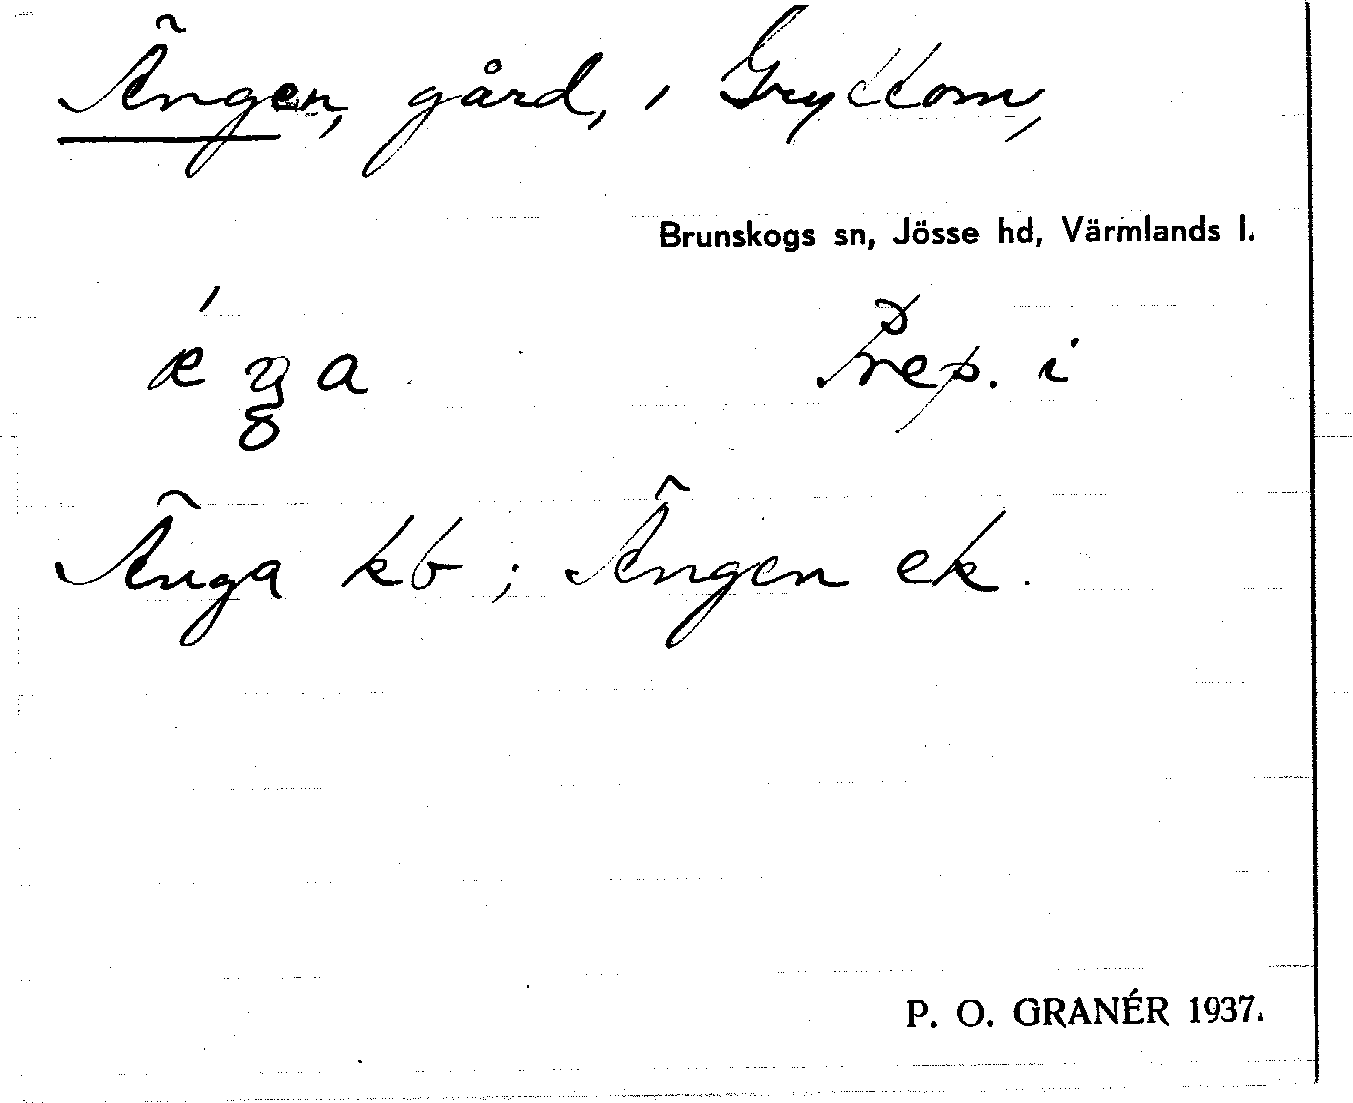 Ängen, gård, i Gryttom,
Brunskogs sn, Jösse hd, Värmlands l.
Prep. i
Änga kb; Ängen ek.
P. O. GRANÉR 1937.